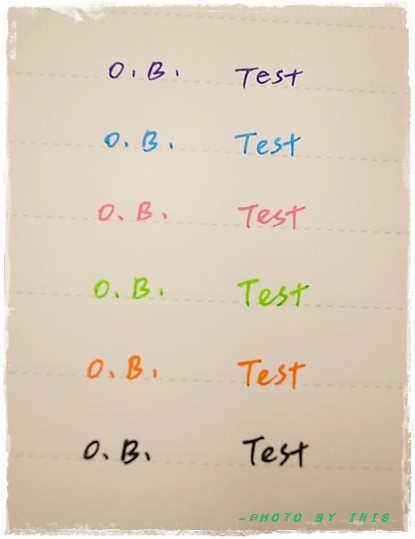 O. B. Test
O. B. Test
O. B. Test
O. B. Test
O. B. Test
O. B. Test
~PHOTO BY IRIS